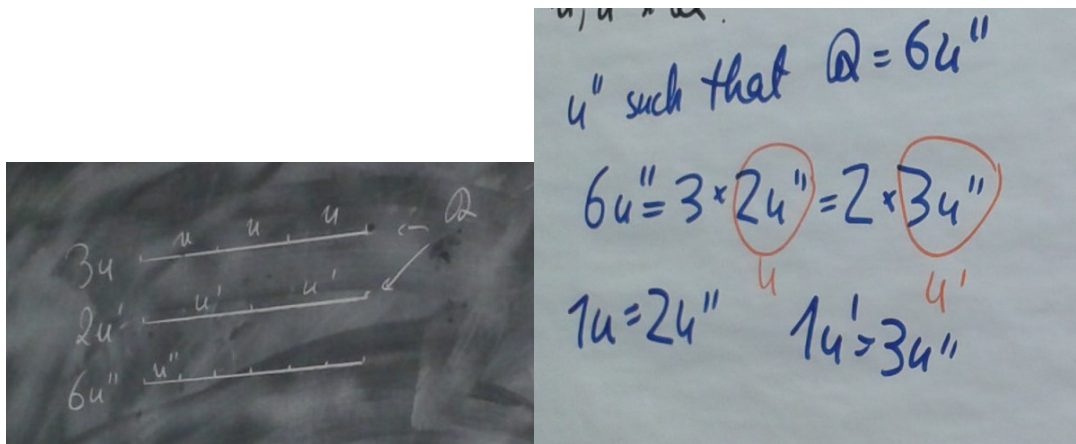 u u u Q
3u
u' u'
2u'
u''
6u''
u'' such that Q = 6u''
6u'' = 3 × 2u'' = 2 × 3u''
u u'
1u = 2u'' 1u' = 3u''